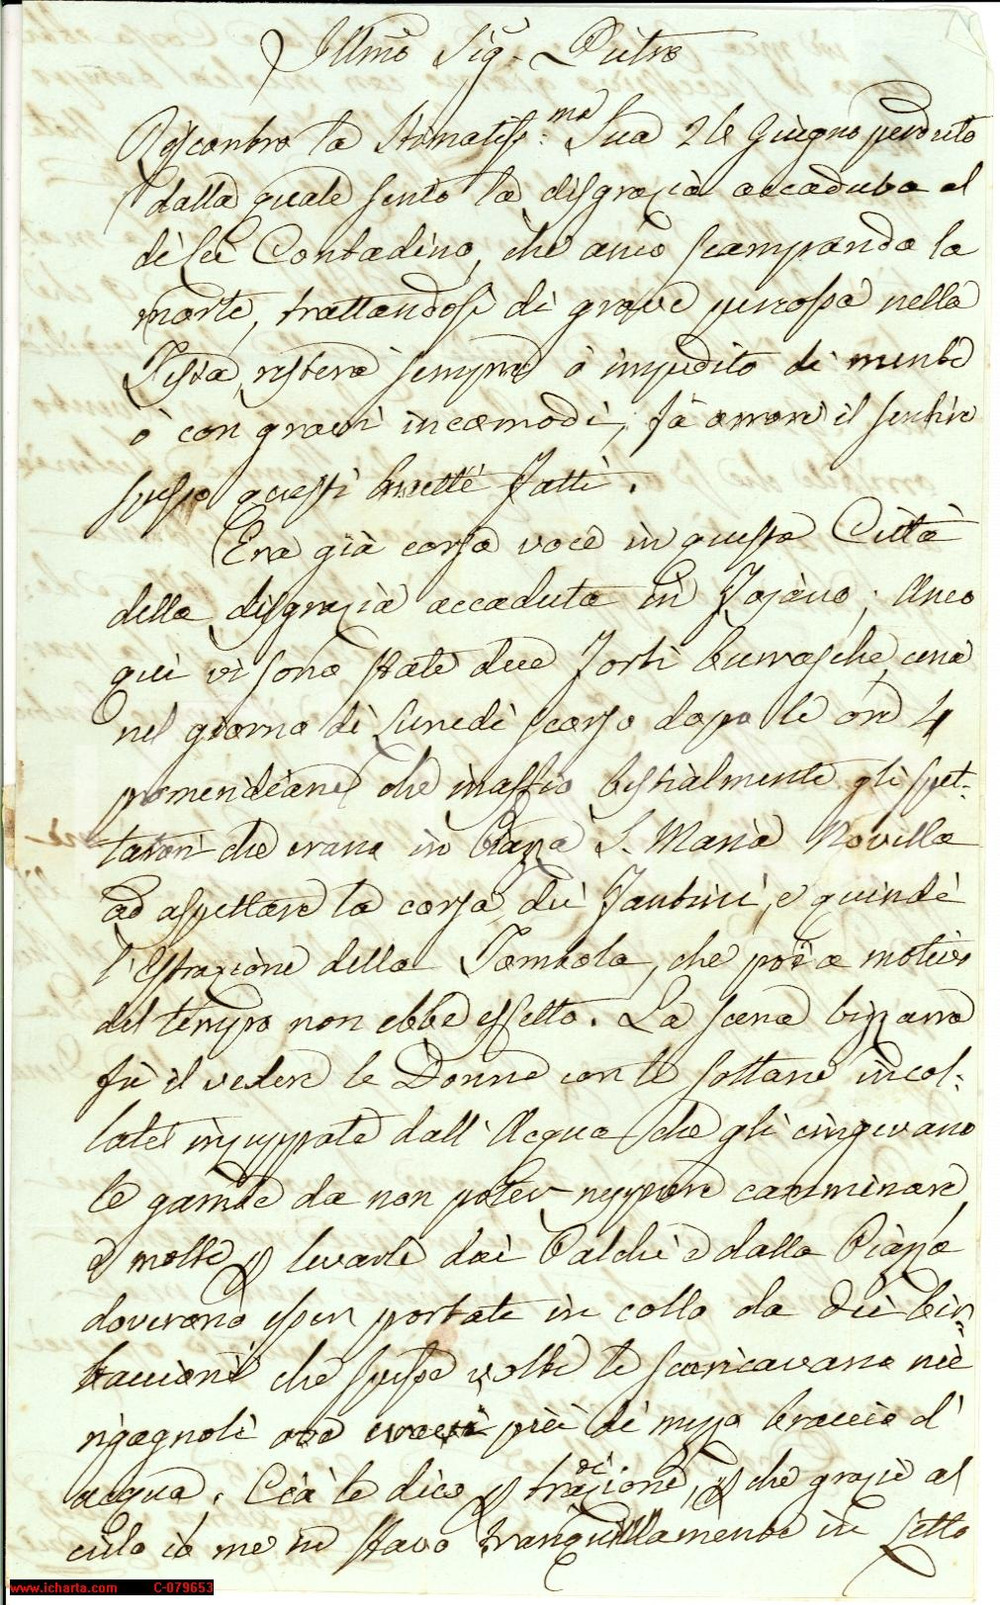 Illmo Sig. Pietro
Riscontro la Stimatiss:ma Sua 26 Giugno perduto
dalla quale sento la disgrazia accaduta al
di Lei Contadino, che anco scampando la
morte, trattandosi di grave percossa nella
Testa, resterà sempre ò impedito di mente
ò con gravi incomodi; fà orrore il sentire
spesso questi brutti fatti.
Era già corsa voce in questa Città
della disgrazia accaduta in Fojano; Anco
qui vi sono state due forti burrasche, una
nel giorno di Lunedì scorso dopo le ore 4
pomeridiane che inaffiò bestialmente gli spet:
tatori che erano in Piazza S. Maria Novella
ad aspettare la corsa dei Fantini, e quindi
l'Estrazione della Tombola, che poi a motivo
del tempo non ebbe effetto. La scena bizzarra
fù il vedere le Donne con le sottane incol:
late inzuppate dall'Acqua che gli cingevano
le gambe da non poter neppure camminare,
e molte p levarle dai Palchi e dalla Piazza
doverono esser portate in collo da dei bir:
baccioni che spesse volte le scaricavano nei
rigagnoli ove eravi più di mezzo braccio d'
acqua. Ciò le dico p tradizione, p che grazie al
culo io me ne stavo tranquillamente in Letto
www.icharta.com C-079653